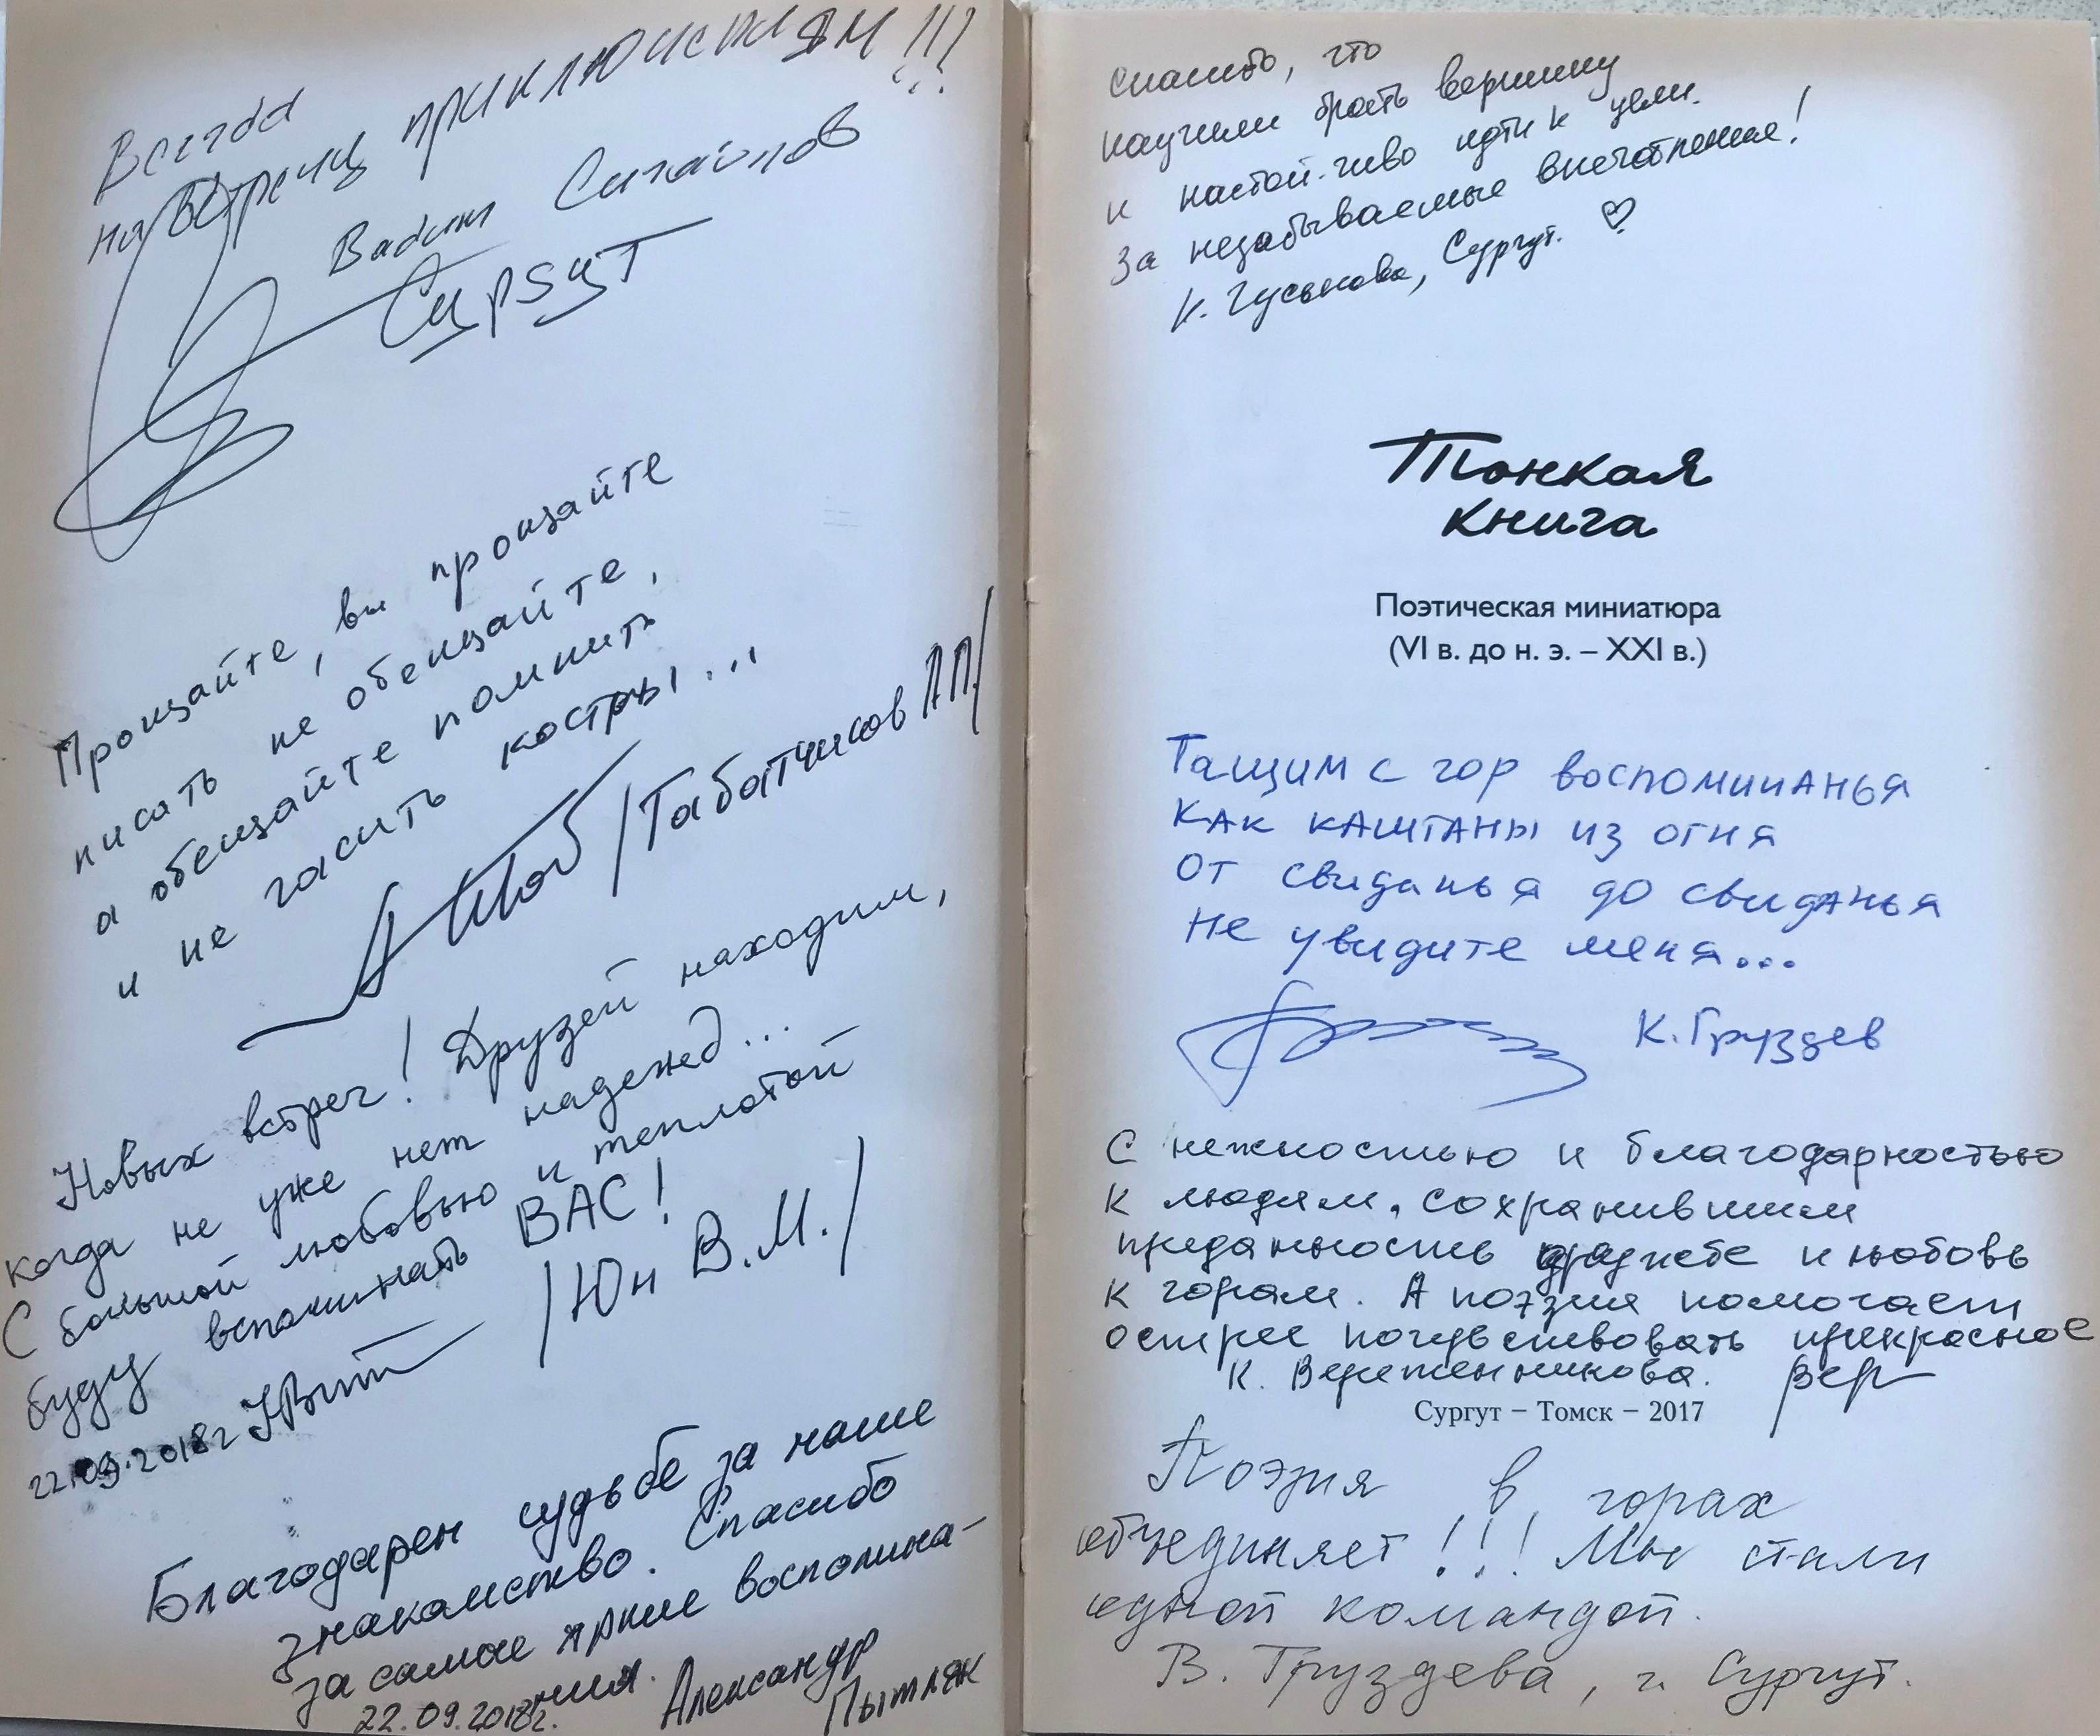 Всегда
на встречу приключениям!!!
Вадим
Сургут
Прощайте, вы прощайте
писать не обещайте,
а обещайте помнить
и не гасить костры...
/Табатчиков А.П./
Новых встреч! Друзей находим,
когда не уже нет надежд...
С большой любовью и теплотой
буду вспоминать ВАС!
22.09.2018г /Юн В.М./
Благодарен судьбе за наше
знакомство. Спасибо
за самые яркие воспомина-
ния. Александр
22.09.2018г. Пытляк
Спасибо, что
научили брать вершину
и настойчиво идти к цели.
За незабываемые впечатления!
К. Гуськова, Сургут. ♡
Тонкая
книга
Поэтическая миниатюра
(VI в. до н. э. – XXI в.)
Тащим с гор воспоминанья
как каштаны из огня
от свиданья до свиданья
не увидите меня...
К. Груздев
С нежностью и благодарностью
к людям, сохранившим
преданность дружбе и любовь
к горам. А поэзия помогает
острее почувствовать прекрасное
К. Веретенникова. Вер
Сургут – Томск – 2017
Поэзия в горах
объединяет!!! Мы стали
одной командой.
В. Груздева, г. Сургут.